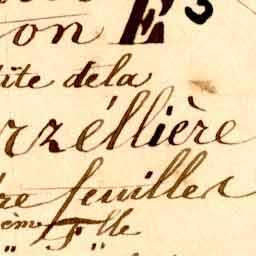 on E 3
tite dela
rzéllière
re feuilles
ème Flle
" "